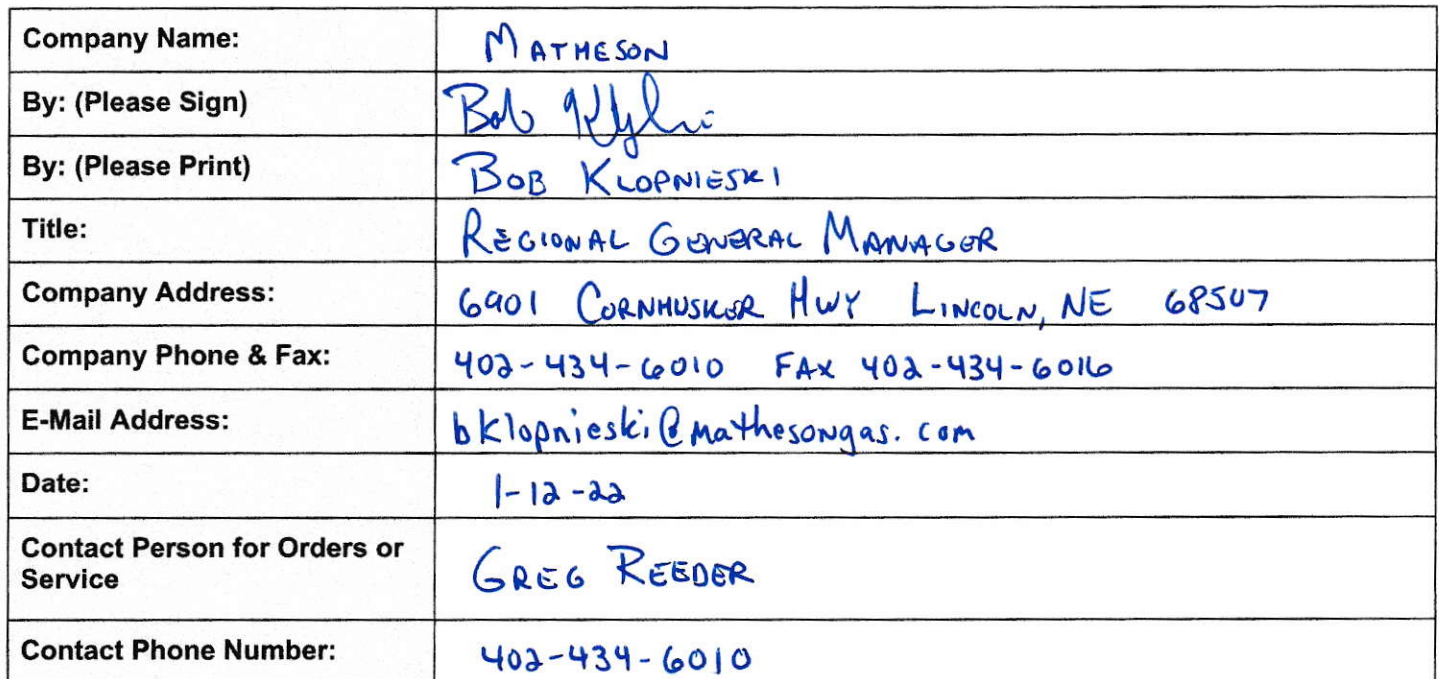 Company Name: MATHESON
By: (Please Sign) Bob
By: (Please Print) BOB KLOPNIESKI
Title: REGIONAL GENERAL MANAGER
Company Address: 6901 CORNHUSKER HWY LINCOLN, NE 68507
Company Phone & Fax: 402-434-6010 FAX 402-434-6016
E-Mail Address: bklopnieski@mathesongas.com
Date: 1-12-22
Contact Person for Orders or
Service GREG REEDER
Contact Phone Number: 402-434-6010